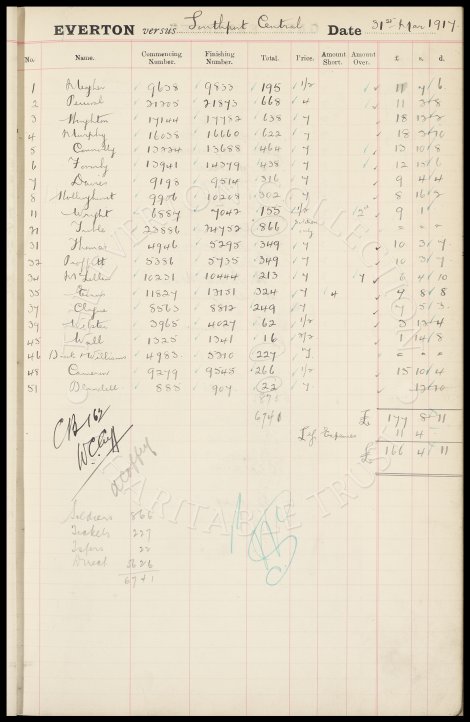 EVERTON versus Southport Central Date 31st Mar 1917.
No. Name. Commencing Number. Finishing Number. Total. Price. Amount Short. Amount Over. £ s. d.
1 Meagher 9638 9833 195 1/2 11 7 6
2 668 4 11 2 8
3 Houghton 17144 17782 638 7 18 12 2
4 Murphy 16038 16660 622 7 18 2 10
5 Connolly 13224 13688 464 7 13 10 8
6 13941 14379 438 7 12 15 6
7 Davies 9198 9514 316 7 9 4 4
8 Hollinghurst 9906 10208 302 7 8 16 2
11 Wright 6887 7042 155 1/2 2 9 1
21 23886 24752 866 " " "
31 Thomas 4946 5295 349 7 10 3 7
32 Proffitt 5386 5735 349 7 10 3 7
34 10231 10444 213 7 7 6 4 10
35 11827 12151 324 7 4 9 8 8
37 Clyne 8563 8812 249 7 7 5 3
39 Webster 3965 4027 62 1/2 3 12 4
45 Wall 1325 1341 16 2/2 1 14 8
46 Dick Williams 4983 5210 227 7 " " "
48 Cameron 9279 9545 266 1/2 15 10 4
51 Blundell 885 907 22 12 10
6741 £ 177 8 11
Less Expenses 11 4
£ 166 4 11
CB 162
Soldiers 866
Tickets 227
22
5626
6741
EVERTON COLLECTION
CHARITABLE TRUST